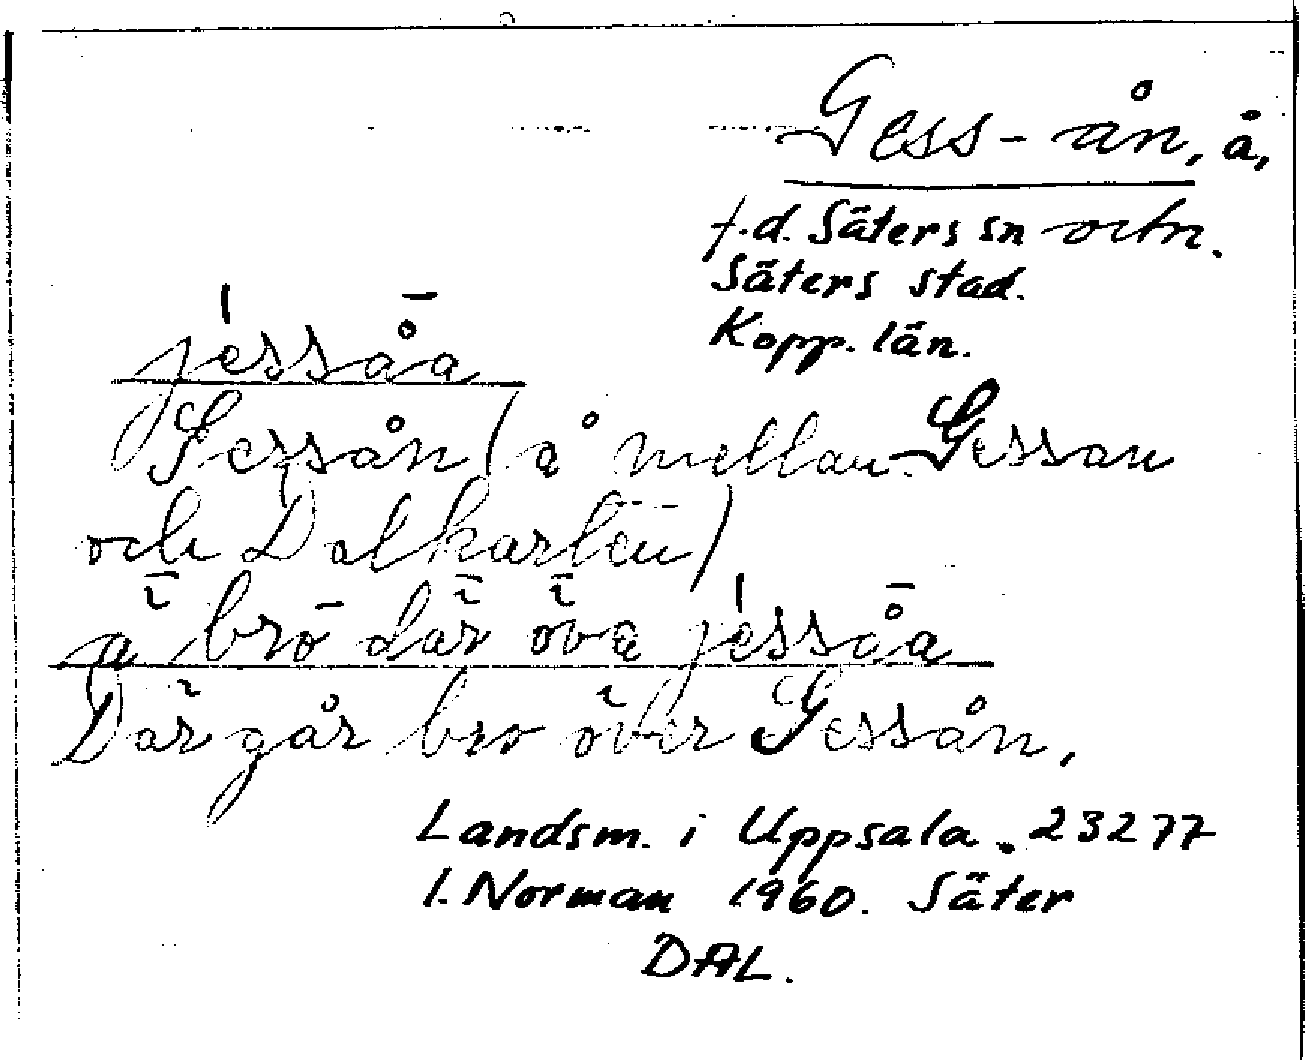 Gess-ån, å,
f.d. Säters sn och
Säters stad.
Kopp. län.
jéssåa
Gessån (å mellan Gessan
och Dalkarlen)
ä brö där öva jéssåa
Där går bro över Gessån,
Landsm. i Uppsala. 23277
I. Norman 1960. Säter
DAL.